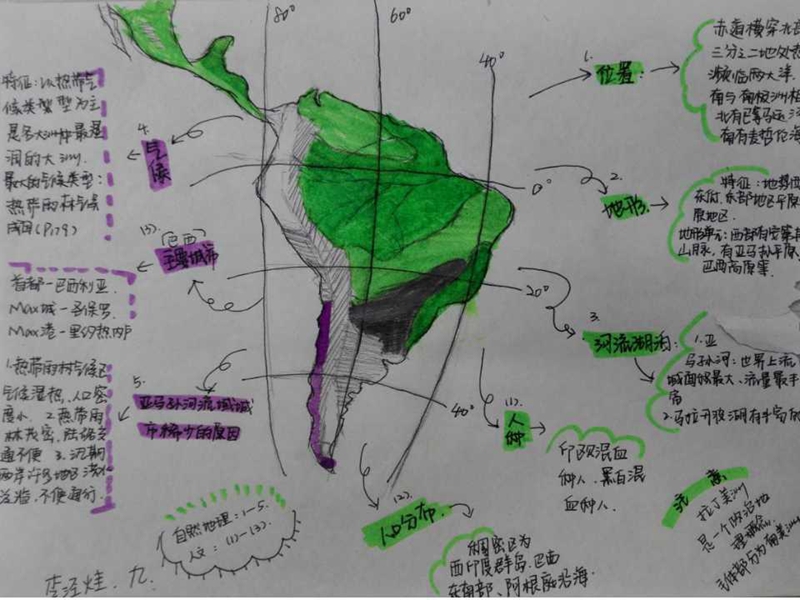 80°
60°
40°
0°
20°
40°
1.
位置:
赤道横穿北部
三分之二地处热
濒临两大洋.
南与南极洲相
北有巴拿马运河
南有麦哲伦海
2.
地形.
特征:地势西
东低.东部地区平原
原地区.
地形单元:西部有安第斯
山脉,有亚马孙平原
巴西高原等.
3.
河流湖泊:
1.亚
马孙河:世界上流
域面积最大、流量最丰
富
2.马拉开波湖
(1).
人种
印欧混血
种人.黑白混
血种人.
(2).
人口分布.
稠密区为
西印度群岛.巴西
东南部、阿根廷沿海.
注意
拉丁美洲
是一个政治地
理概念
主体部分为南美洲
4.
气候
特征:以热带气
候类型为主
是各大洲中最湿
润的大洲.
最大的气候类型:
热带雨林气候
成因(P179)
(3).
(巴西)
主要城市
首都-巴西利亚
Max城-圣保罗
Max港-里约热内卢
5.
亚马孙河流域城
市稀少的原因
1.热带雨林气候区
气候湿热,人口密
度小 2.热带雨
林茂密,陆路交
通不便 3.汛期
两岸许多地区
,不便通行.
自然地理:1-5.
人文:(1)-(3).
九.